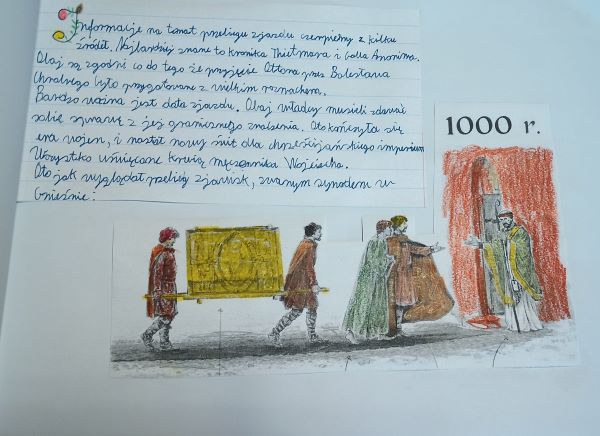 Informacje na temat przebiegu zjazdu czerpiemy z kilku
źródeł. Najbardziej znane to kronika Thietmara i Galla Anonima.
Obaj są zgodni co do tego że przyjęcie Ottona przez Bolesława
Chrobrego było przygotowane z wielkim rozmachem.
Bardzo ważna jest data zjazdu. Obaj władcy musieli zdawać
sobie sprawę z jej granicznego znaczenia. Oto kończyła się
era wojen, i nastał nowy świt dla chrześcijańskiego imperium
Wszystko uświęcone krwią męczennika Wojciecha.
Oto jak wyglądał przebieg zjawisk, zwanym synodem w
Gnieźnie:
1000 r.